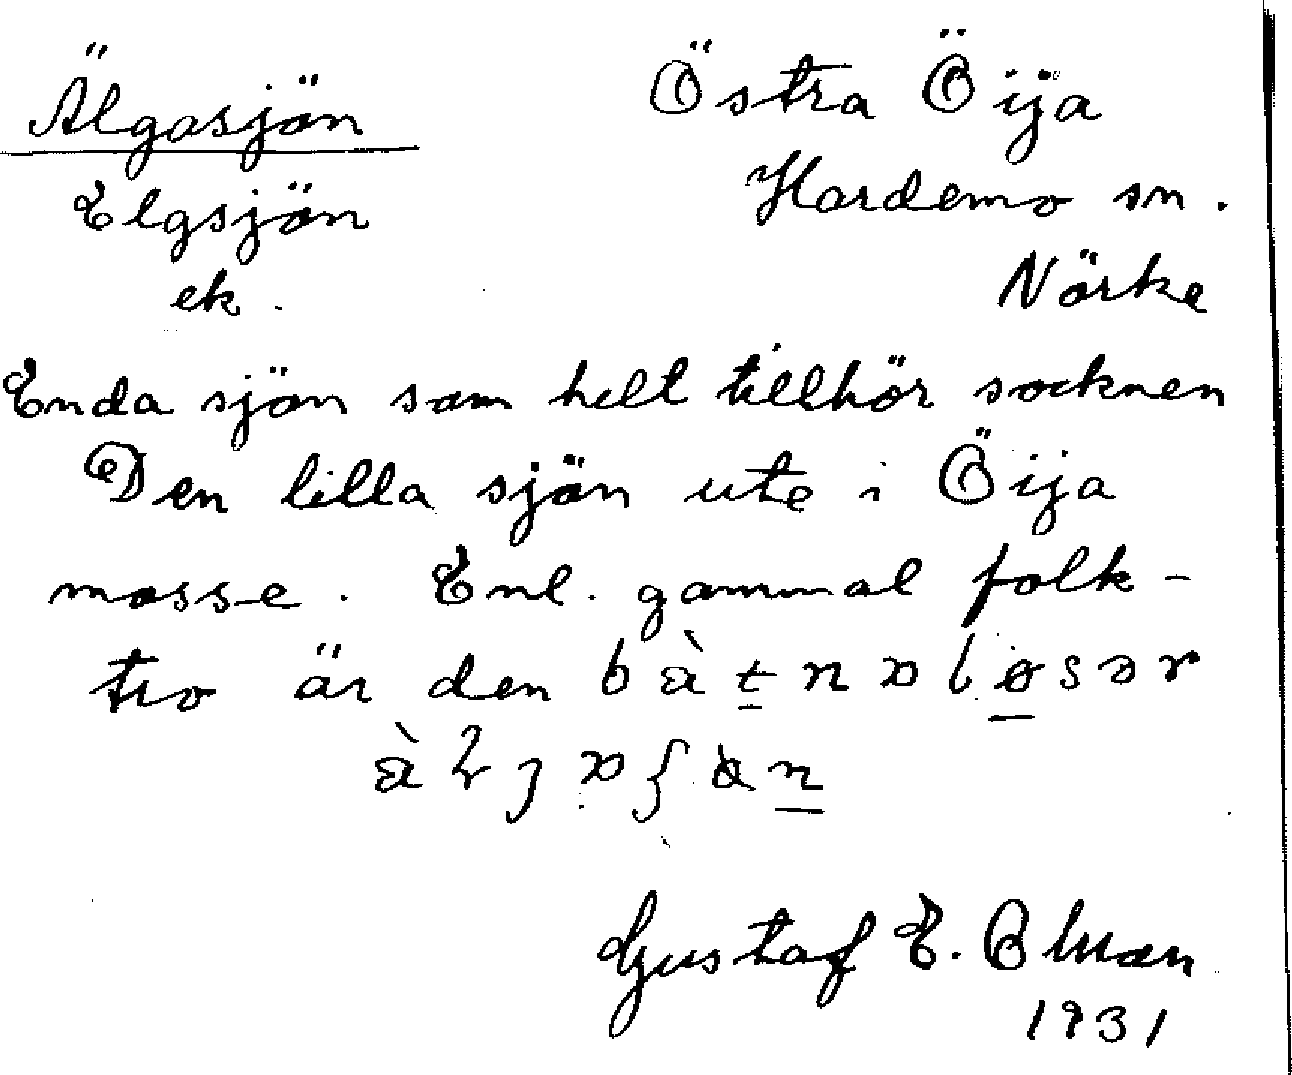 Älgasjön
Elgsjön
ek.
Östra Öija
Hardemo sn.
Närke
Enda sjön som helt tillhör socknen
Den lilla sjön ute i Öija
mosse. Enl. gammal folk-
tro är den
Gustaf E.
1931